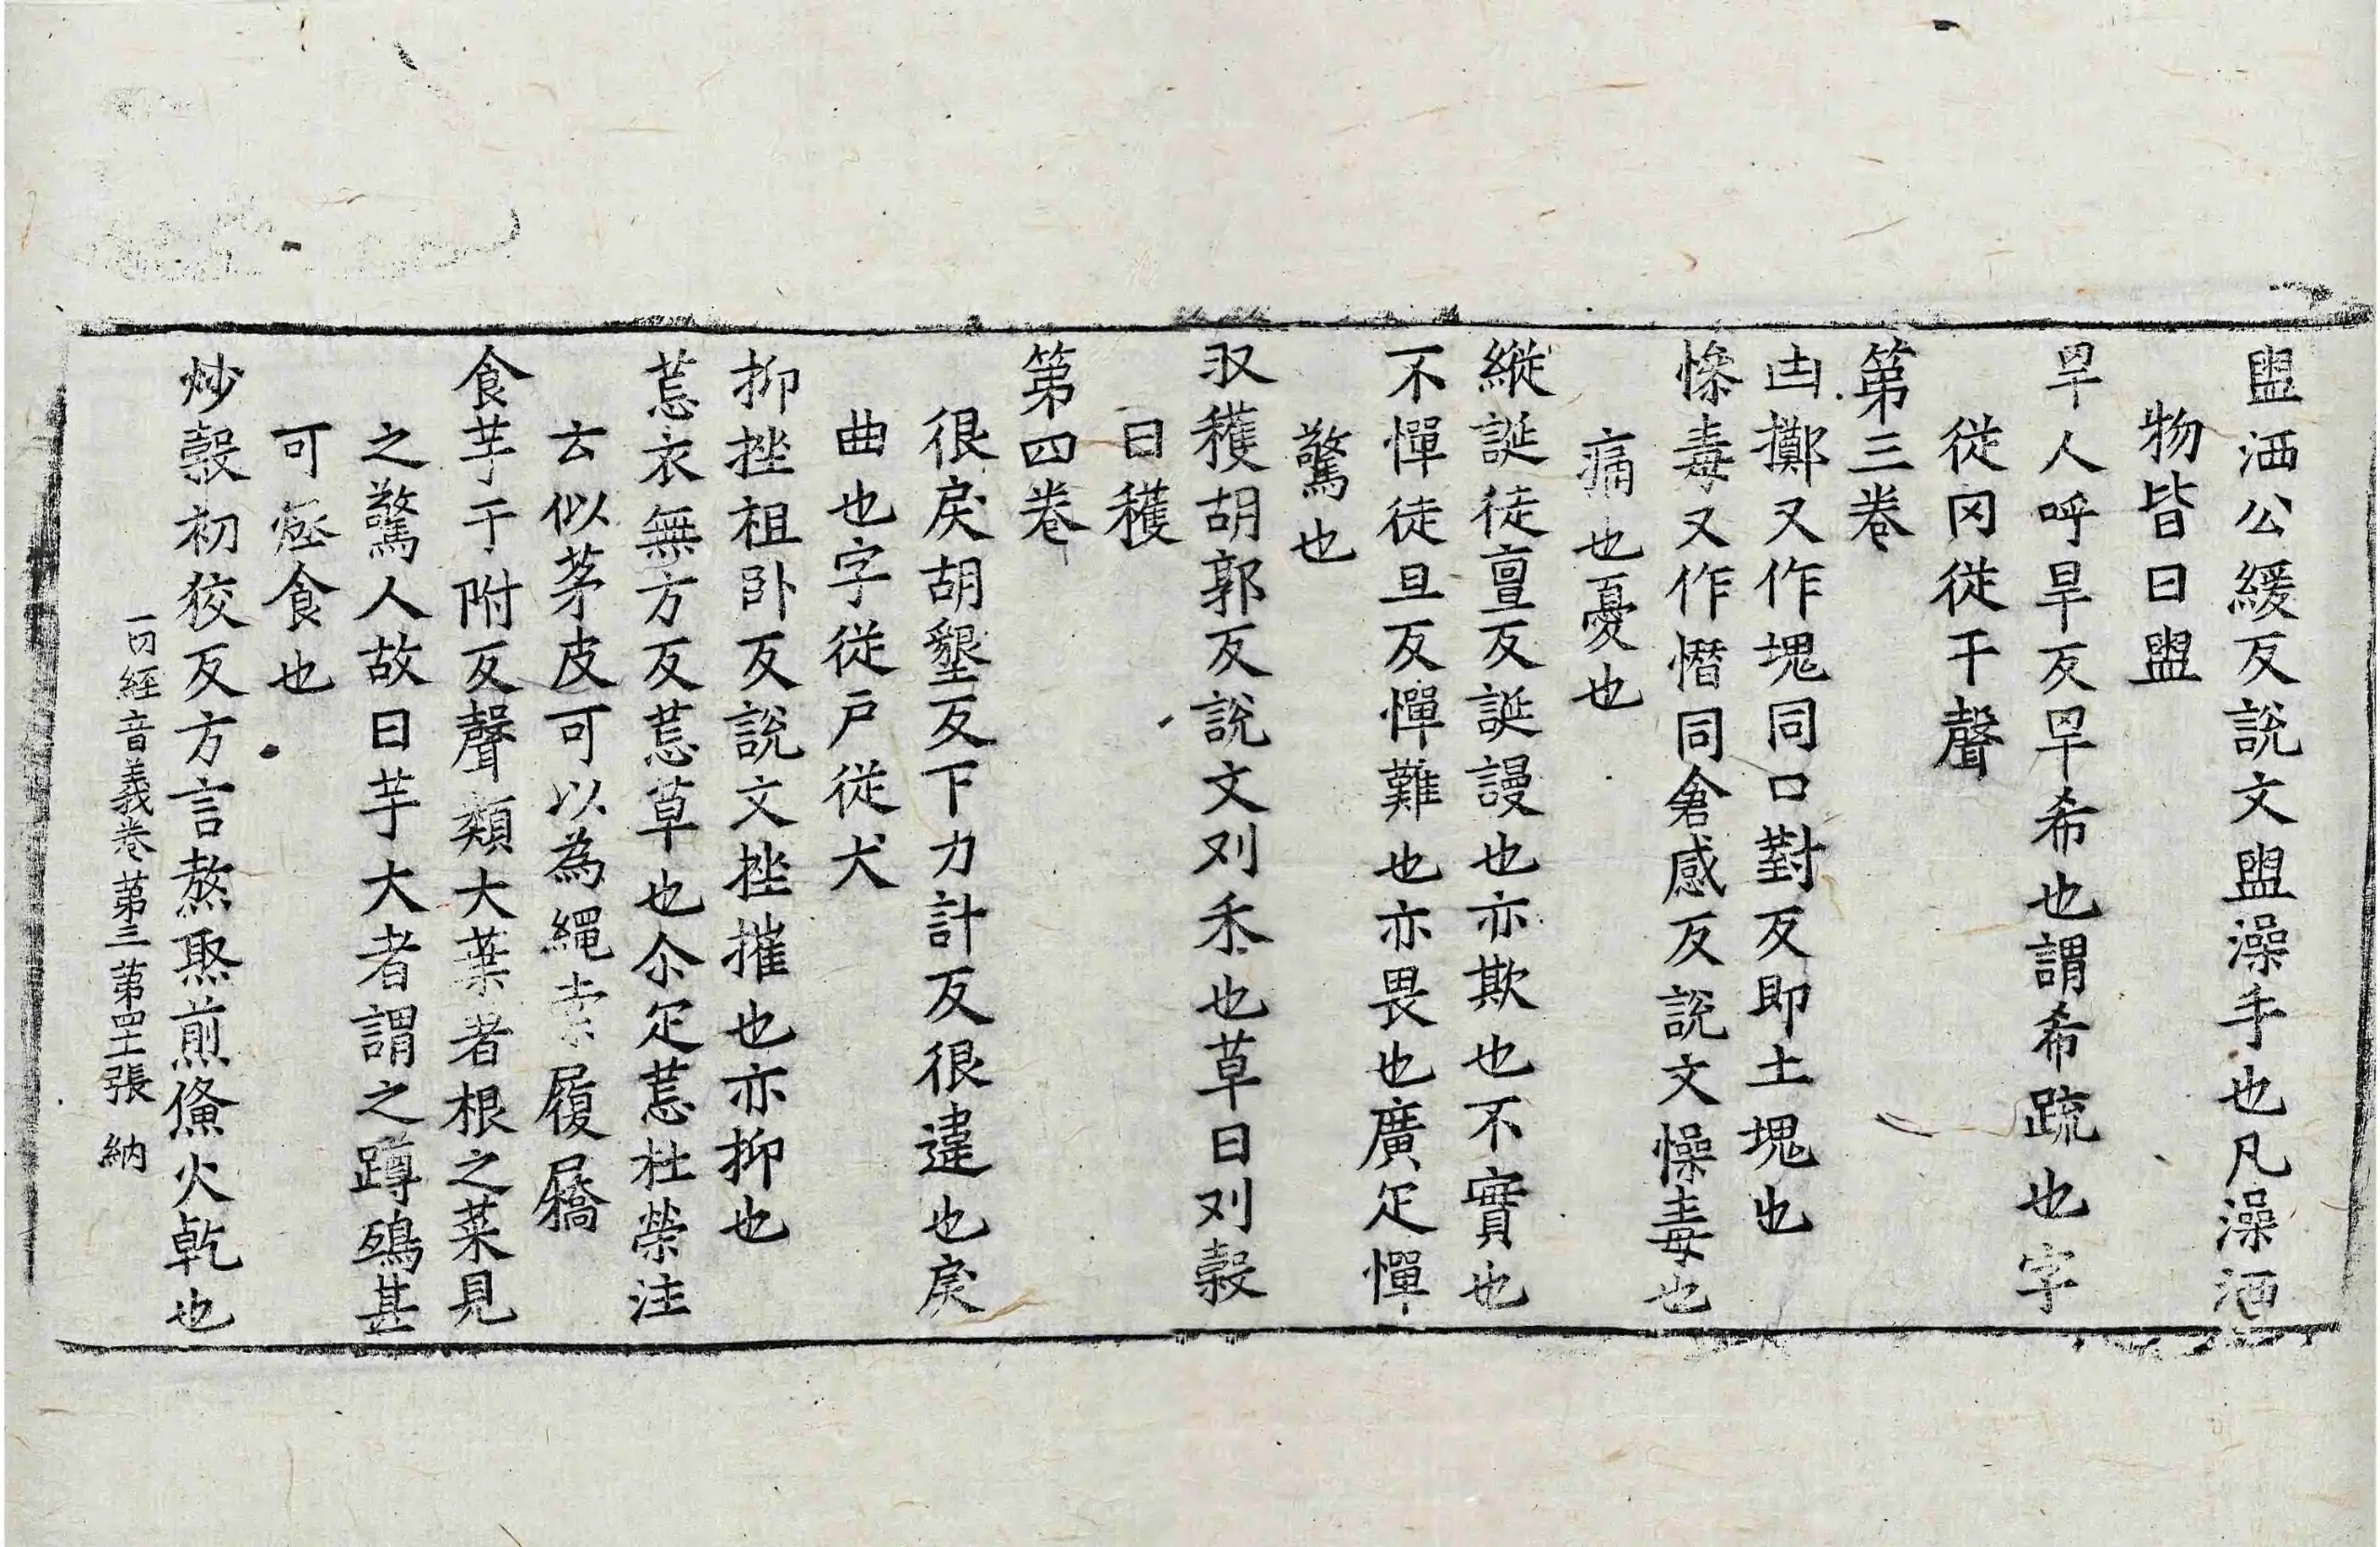 盥洒公緩反說文盥澡手也凡澡洒
物皆曰盥
罕人呼旱反罕希也謂希疏也字
從冈從干聲
第三卷
凷擲又作塊同口對反即土塊也
慘毒又作憯同倉感反說文懆毒也
痛也憂也
縱誕徒亶反誕謾也亦欺也不實也
不憚徒旦反憚難也亦畏也廣疋憚
驚也
収穫胡郭反說文刈禾也草曰刈穀
曰穫
第四卷
很戾胡墾反下力計反很違也戾
曲也字從戶從犬
抑挫祖卧反說文挫摧也亦抑也
莣衣無方反莣草也尒疋莣杜榮注
云似茅皮可以為繩索履屩
食芋于附反聲類大葉者根之菜見
之驚人故曰芋大者謂之蹲鵄甚
可蒸食也
炒㲉初狡反方言熬㷅煎㷶火乾也
一切經音義卷第三 第四十張 納